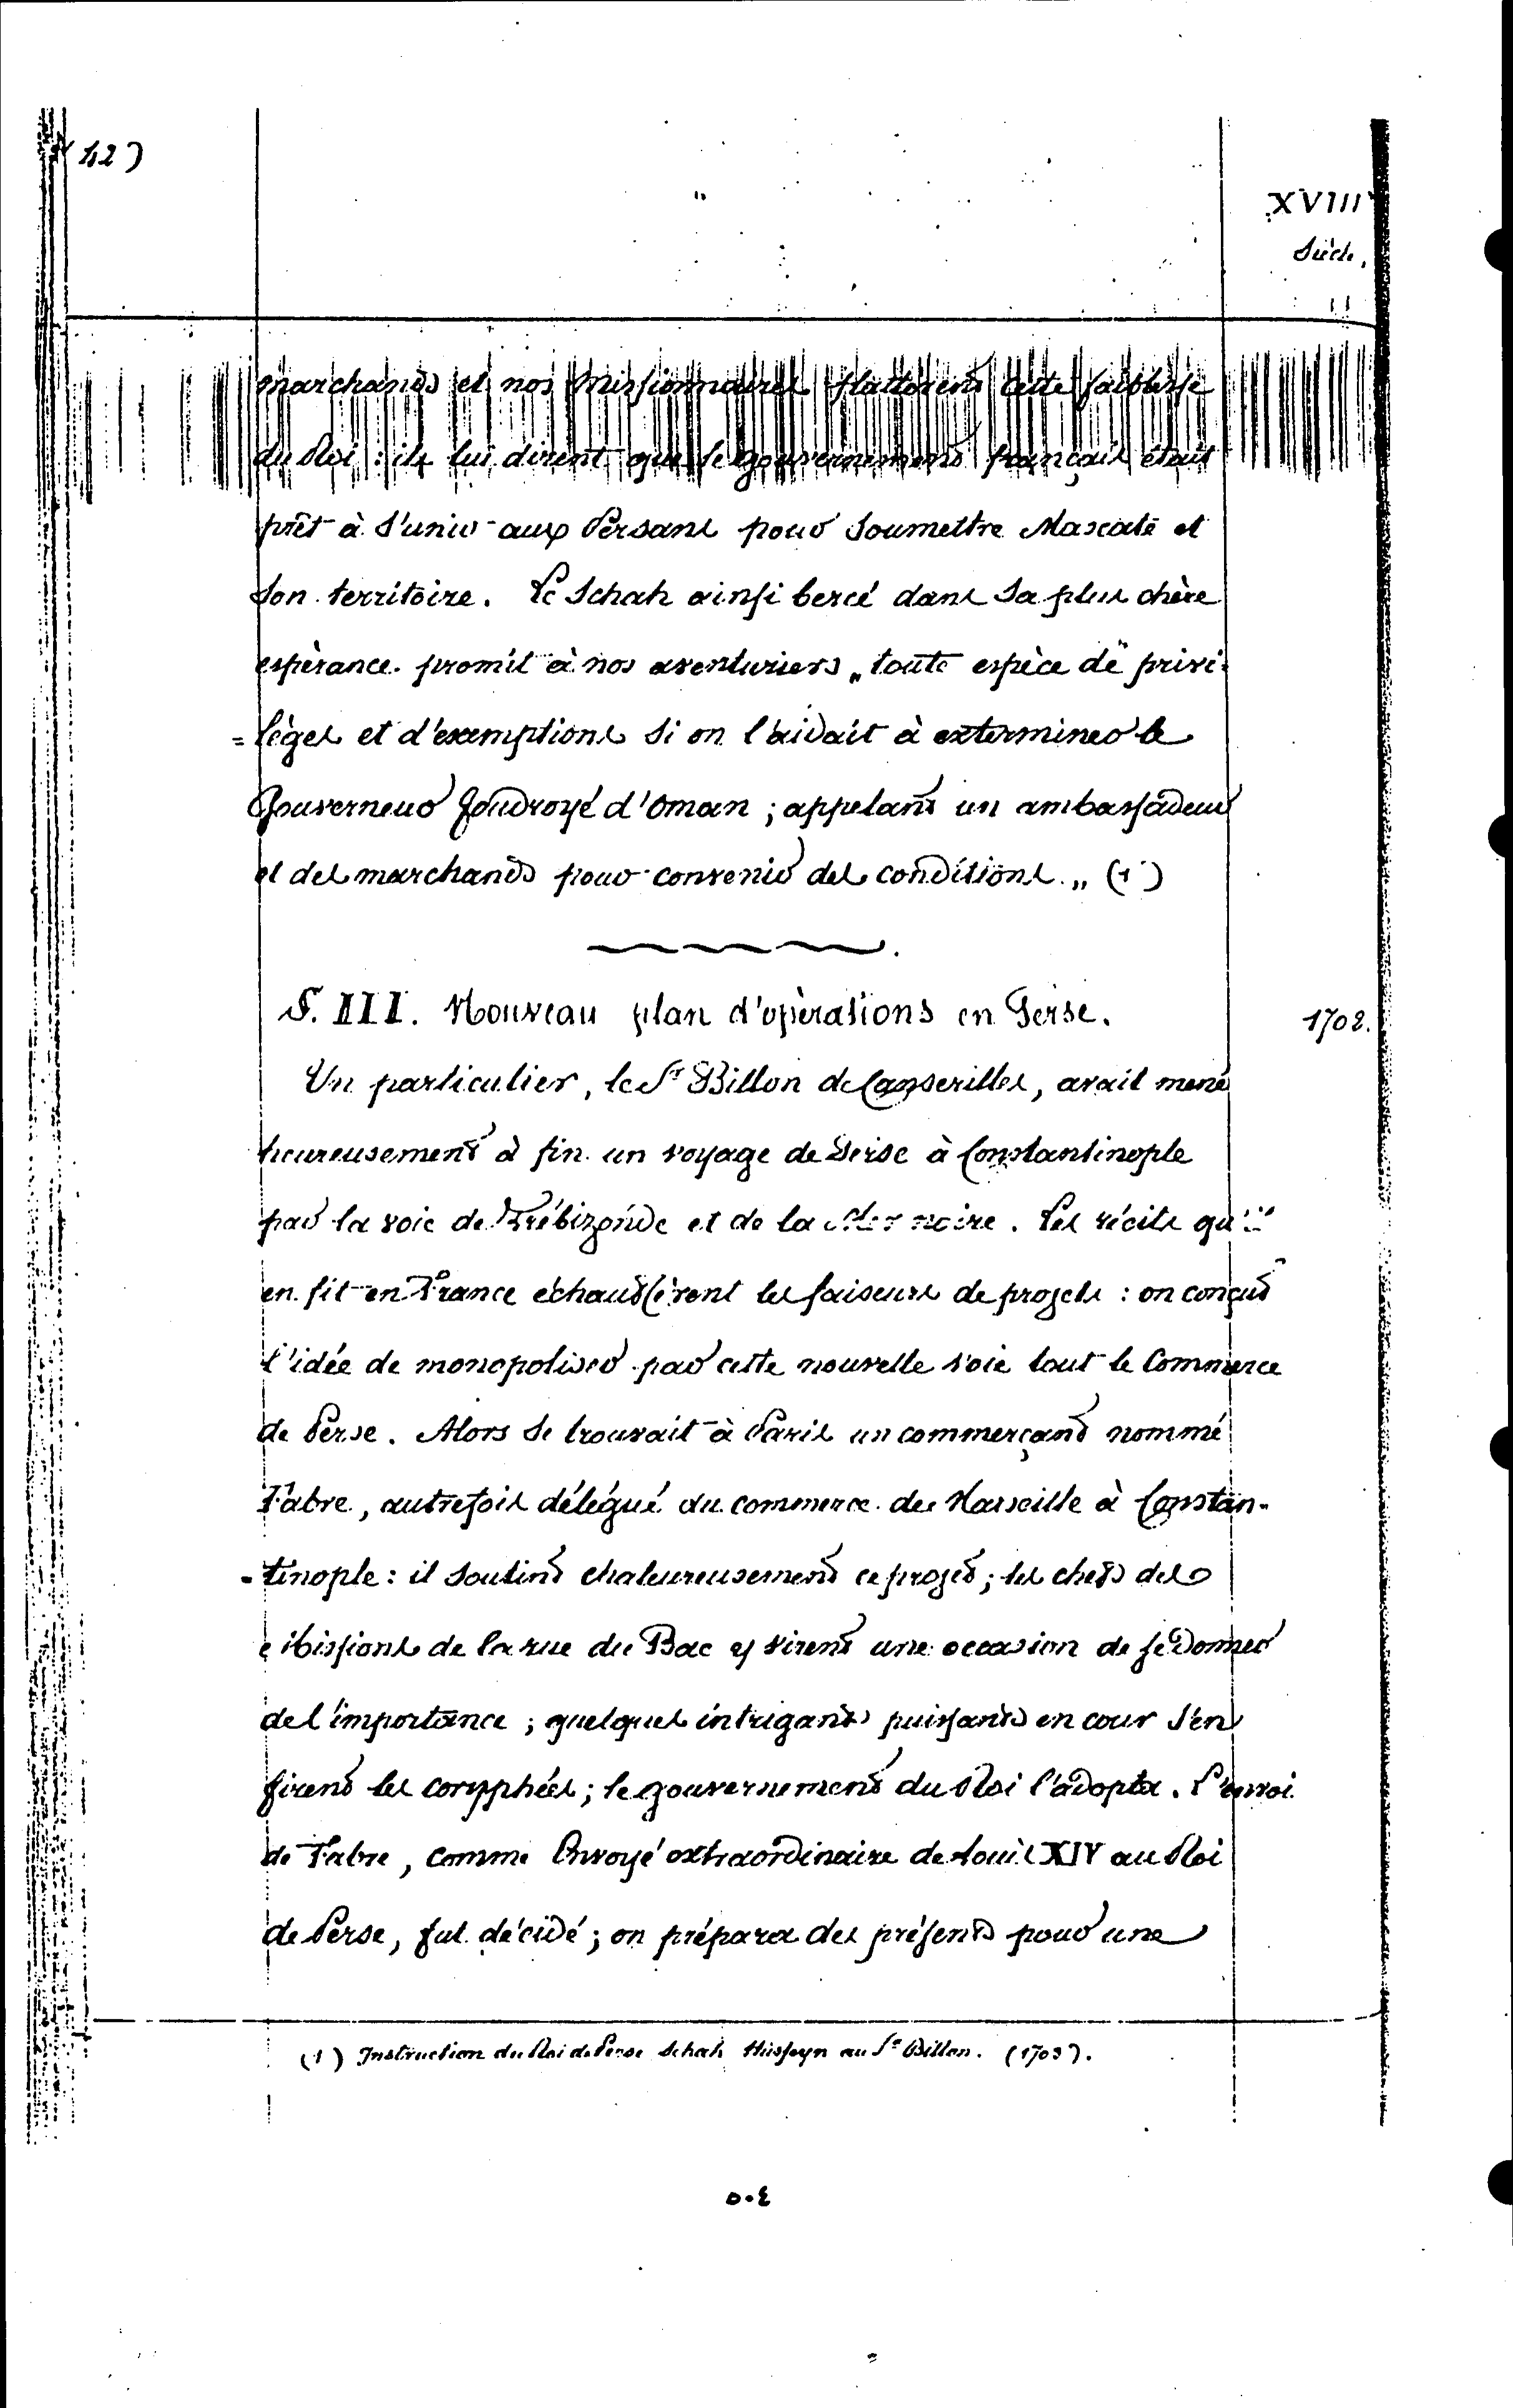 (42)
XVIII
Siècle,
marchands et nos missionnaires flattèrent cette faiblesse
du Roi : ils lui dirent que le gouvernement français était
prêt à s'unir aux Persans pour soumettre Mascate et
son territoire. Le Schah ainsi bercé dans sa plus chère
espèrance promit à nos aventuriers „ toute espèce de privi-
=lèges et d'exemptions si on l'aidait à exterminer le
Gouverneur foudroyé d'Oman ; appelant un ambassadeur
et des marchands pour convenir des conditions. „ (1)
S. III. Nouveau plan d'opèrations en Perse.
1702.
Un particulier, le Sr Billon de Canserilles, avait mené
heureusement à fin un voyage de Perse à Constantinople
par la voie de Trébizonde et de la Mer noire. Les récits qu'il
en fit en France échauffèrent les faiseurs de projets : on conçut
l'idée de monopoliser par cette nouvelle voie tout le Commerce
de Perse. Alors se trouvait à Paris un commerçant nommé
Fabre, autrefois délégué du commerce de Marseille à Constan-
-tinople : il soutint chaleureusement ce projet ; les chefs des
Missions de la rue du Bac y virent une occasion de se donner
de l'importance ; quelques intrigants puissants en cour s'en
firent les coryphées ; le gouvernement du Roi l'adopta. L'envoi
de Fabre, comme Envoyé extraordinaire de Louis XIV au Roi
de Perse, fut décidé ; on prépara des présents pour une
(1) Instruction du Roi de Perse Schah Husseyn au Sr Billon. (1703).
٥٠٤